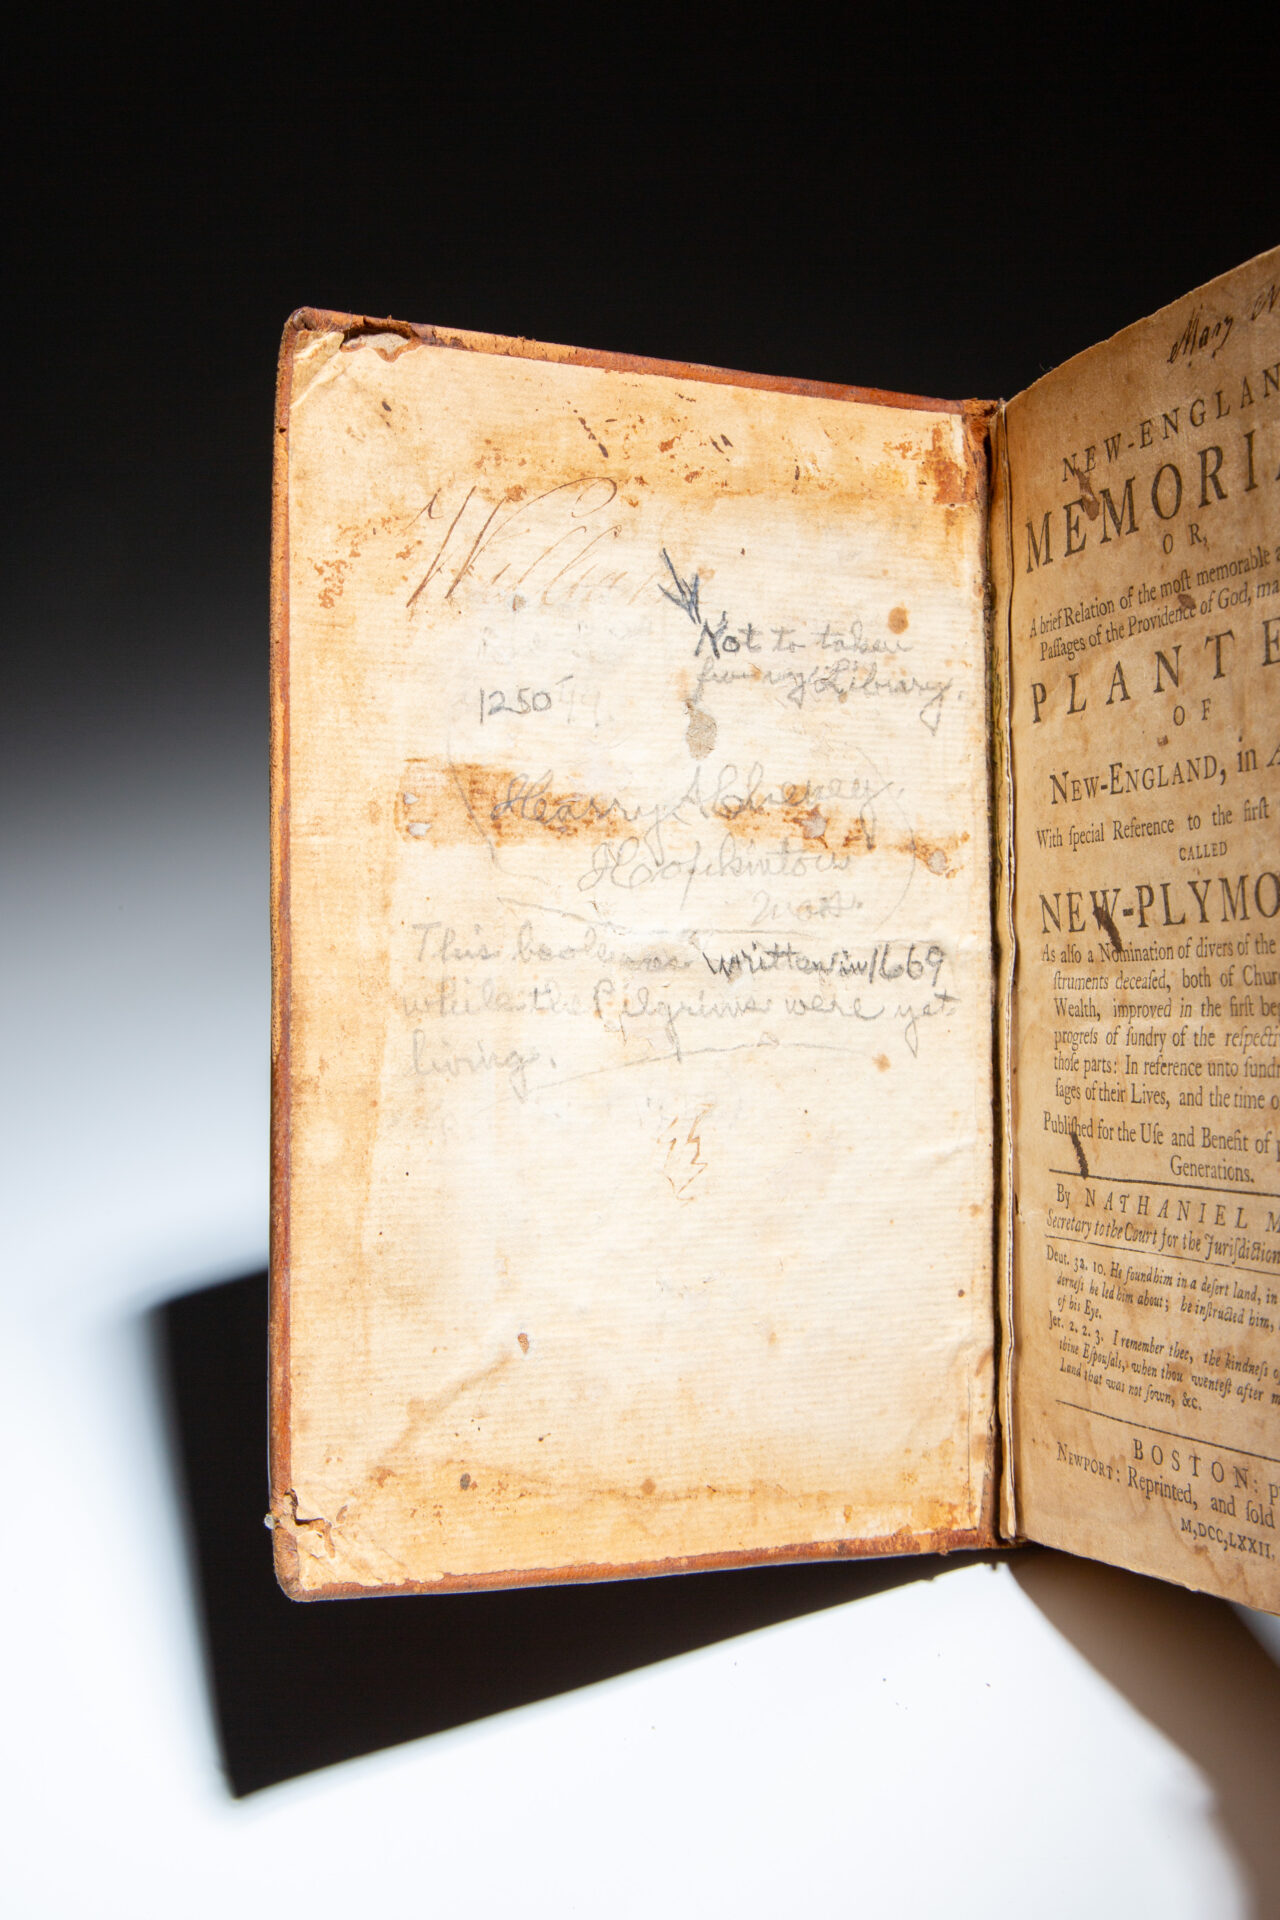 William
Not to taken
from my Library.
1250
Harry A Cheney,
Hopkinton
Mass.
This book was written in 1669
while the Pilgrims were yet
living.
Mary
NEW-ENGLAN
MEMORI
OR,
A brief Relation of the moſt memorable
Paſſages of the Providence of God, ma
PLANTE
OF
NEW-ENGLAND, in
With ſpecial Reference to the firſt
CALLED
NEW-PLYMO
As alſo a Nomination of divers of the
ſtruments deceaſed, both of Chur
Wealth, improved in the firſt be
progreſs of ſundry of the reſpecti
thoſe parts: In reference unto ſundr
ſages of their Lives, and the time o
Publiſhed for the Uſe and Benefit of
Generations.
By NATHANIEL M
Secretary to the Court for the Juriſdiction
Deut. 32. 10. He found him in a deſert land, in
derneſs he led him about; he inſtructed him,
of his Eye.
Jer. 2. 2. 3. I remember thee, the kindneſs o
thine Eſpouſals, when thou wenteſt after m
Land that was not ſown, &c.
BOSTON: P
NEWPORT: Reprinted, and ſold
M,DCC,LXXII.